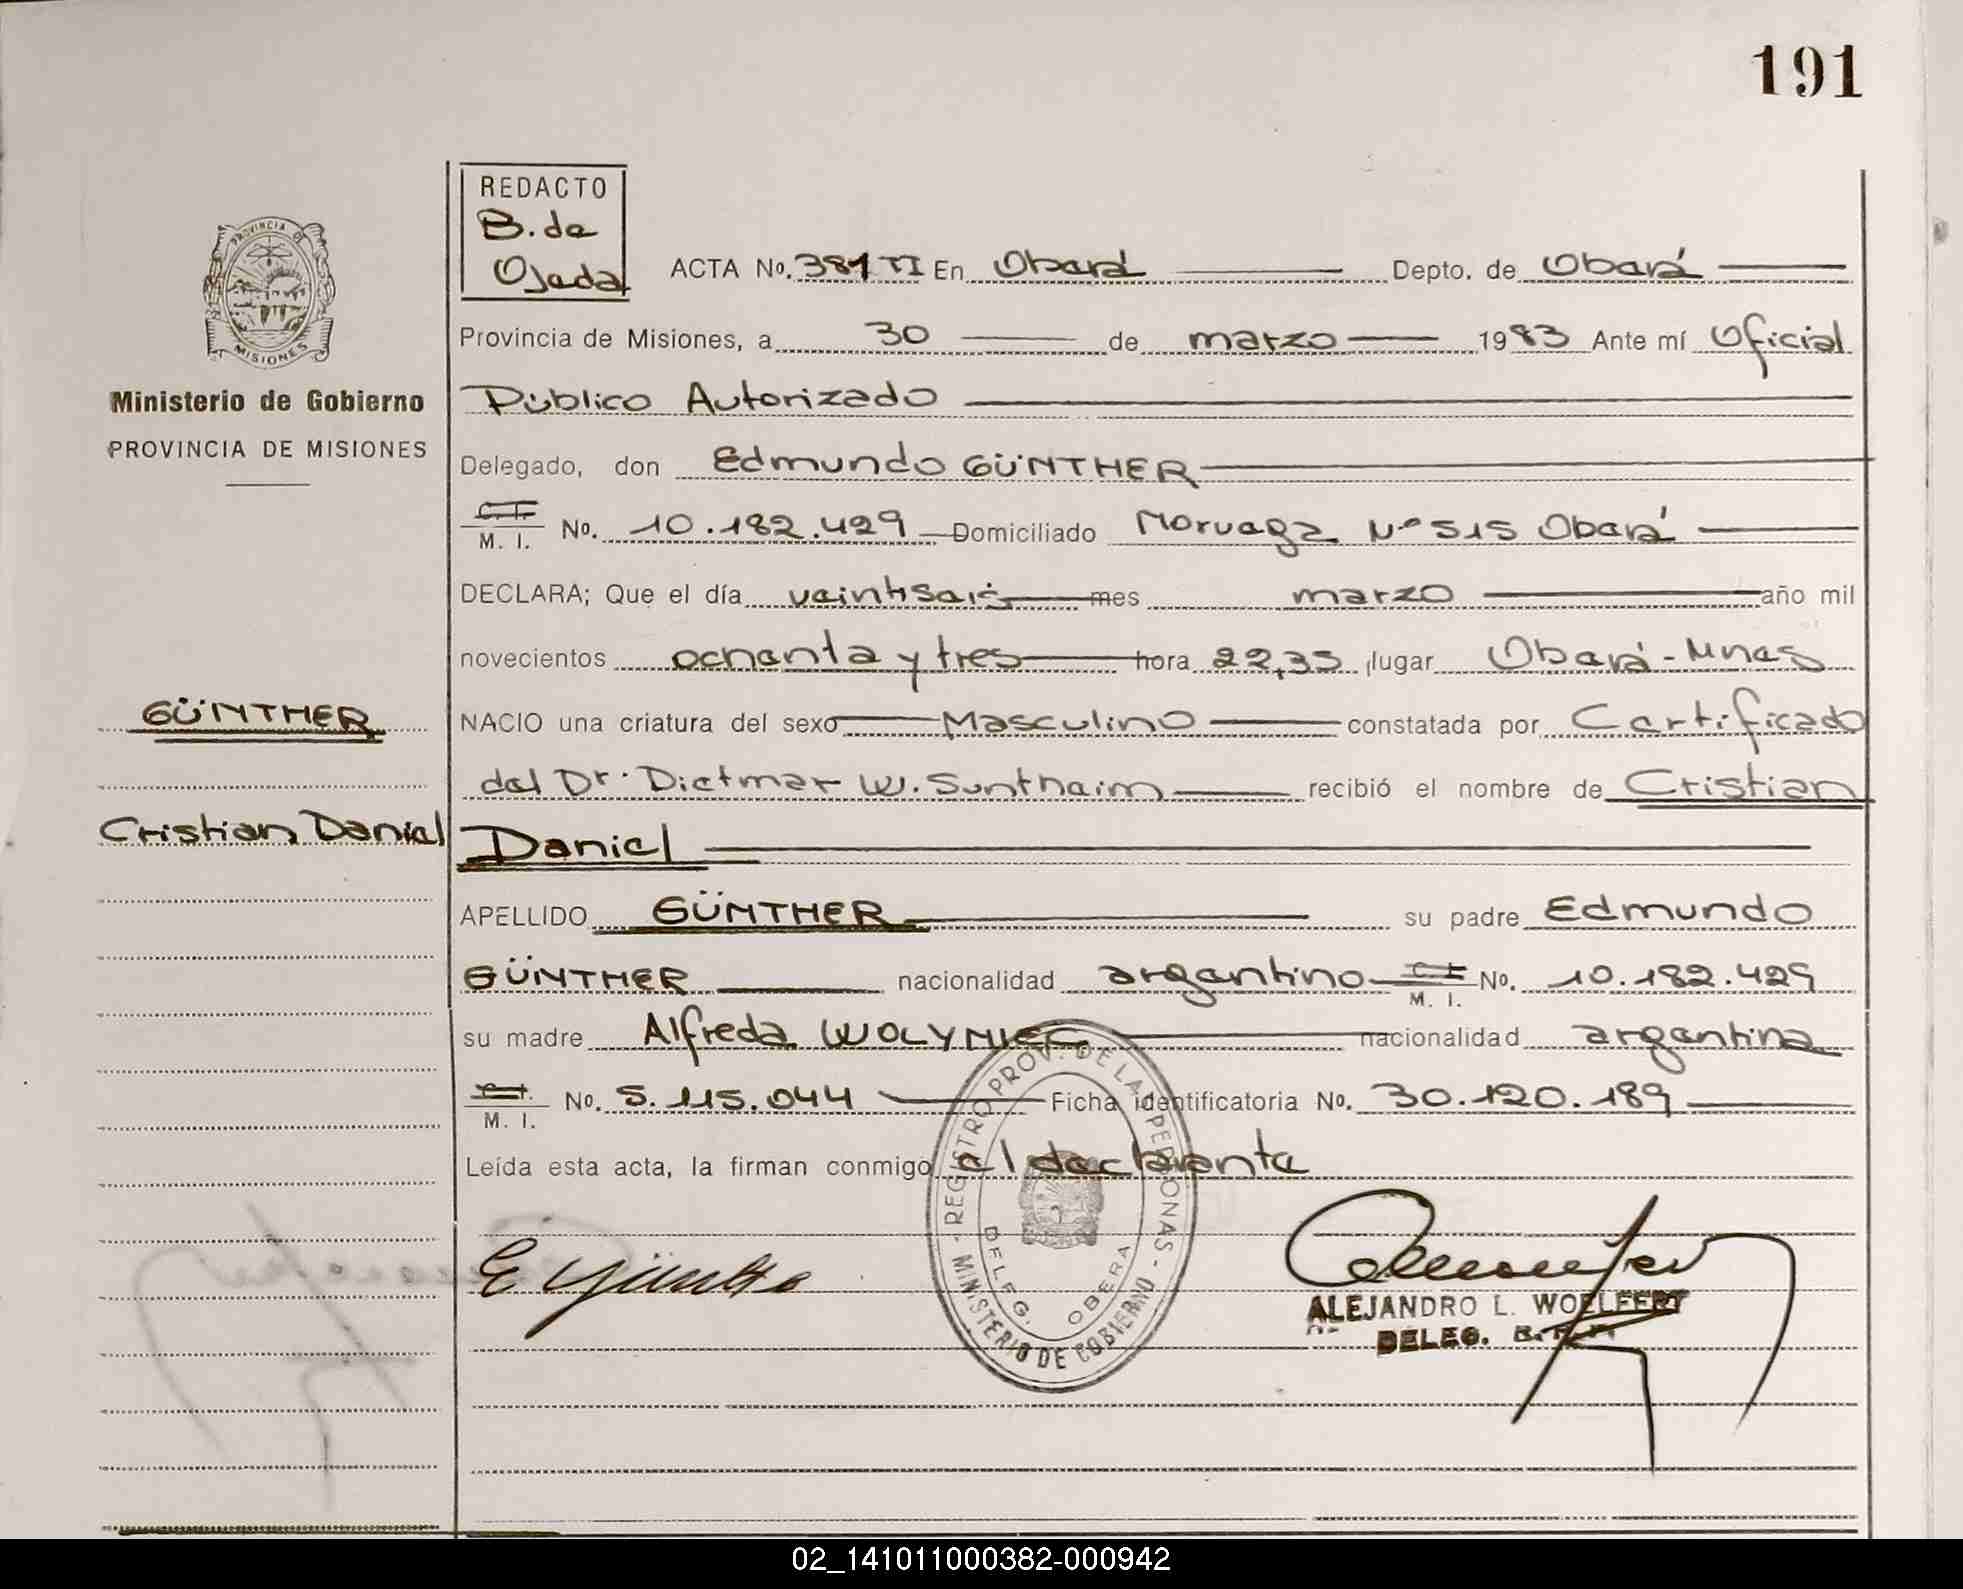 191
REDACTO
B. de
Ojeda
PROVINCIA DE
MISIONES
Ministerio de Gobierno
PROVINCIA DE MISIONES
ACTA No. 381 TI En Oberá Depto. de Oberá
Provincia de Misiones, a 30 de marzo 1983 Ante mí Oficial
Público Autorizado
Delegado, don Edmundo GÜNTHER
C.I. M. I. No. 10.182.429 Domiciliado Nº 515 Oberá
DECLARA; Que el día veintiseis mes marzo año mil
novecientos ochenta y tres hora 22,35 lugar Oberá - Mnes
GÜNTHER
NACIO una criatura del sexo Masculino constatada por Certificado
del Dr. Dietmar W. Sontheim recibió el nombre de Cristian
Cristian Daniel
Daniel
APELLIDO GÜNTHER su padre Edmundo
GÜNTHER nacionalidad argentino C.I. M. I. No. 10.182.429
su madre Alfreda WOLYNIEC nacionalidad argentina
C.I. M. I. No. 5.115.044 Ficha identificatoria No. 30.120.189
Leída esta acta, la firman conmigo el declarante
REGISTRO PROV. DE LAS PERSONAS - MINISTERIO DE GOBIERNO -
DELEG. OBERA
E Günther
ALEJANDRO L. WOELFERT
DELEG.
02_141011000382-000942